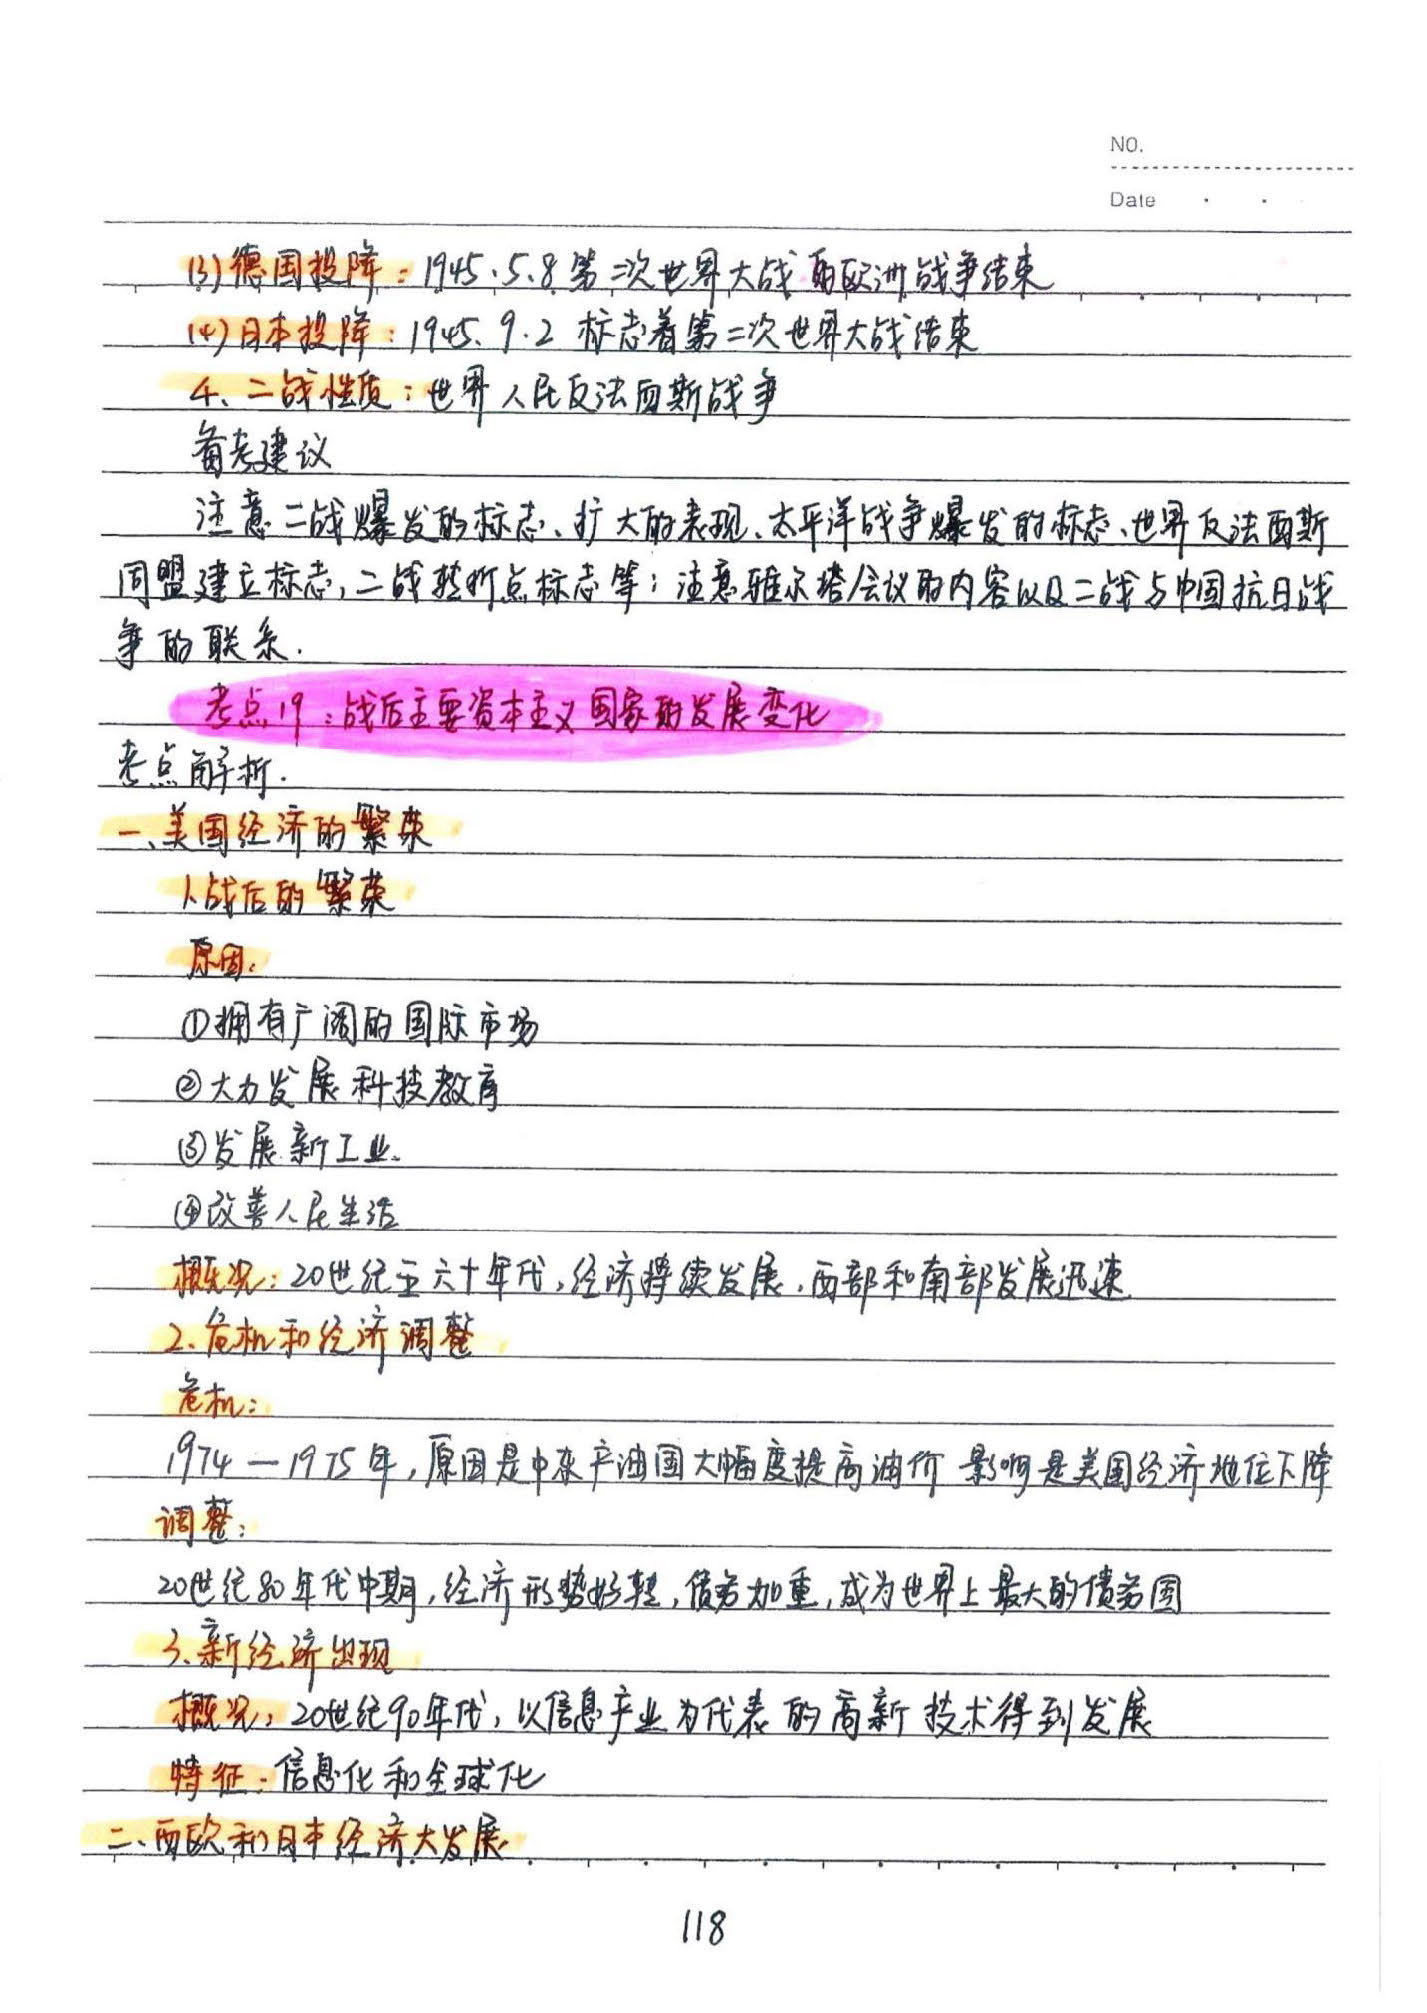 NO.
Date
(3)德国投降：1945.5.8 第二次世界大战的欧洲战争结束
(4)日本投降：1945.9.2 标志着第二次世界大战结束
4、二战性质：世界人民反法西斯战争
备考建议
注意二战爆发的标志、扩大的表现、太平洋战争爆发的标志、世界反法西斯
同盟建立标志，二战转折点标志等；注意雅尔塔会议的内容以及二战与中国抗日战
争的联系.
考点19：战后主要资本主义国家的发展变化
考点解析.
一、美国经济的繁荣
1、战后的繁荣
原因：
①拥有广阔的国际市场
②大力发展科技教育
③发展新工业.
④改善人民生活
概况：20世纪五六十年代，经济持续发展，西部和南部发展迅速
2、危机和经济调整
危机：
1974—1975年，原因是中东产油国大幅度提高油价 影响是美国经济地位下降
调整：
20世纪80年代中期，经济形势好转，债务加重，成为世界上最大的债务国
3、新经济出现
概况：20世纪90年代，以信息产业为代表的高新技术得到发展
特征：信息化和全球化
二、西欧和日本经济大发展
118